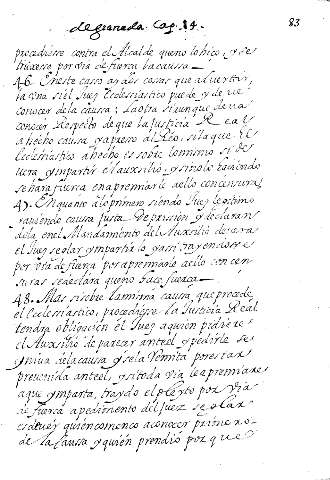 de granada Cap. 14. 83
procediesse contra el Alcalde que no lo hizo, y se
truxesse por via de fuerça la caussa.
46. En este casso ay dos cosas que advertir,
la una si el Juez Ecclesiastico puede, y deve
conocer de la causa; la otra si aunque deva
conocer Respecto de que la Justicia Real
a hecho causa y a preso al Reo, si la que el
Ecclesiastico a hecho es sobre lo mismo si de
vera ympartir el auxilio, y si no lo haciendo
se hara fuerza en apremiarle a ello con censuras
47. En quanto a lo primero siendo Juez legitimo
y aviendo causa justa De prission, y declaran
dola en el Mandamiento del Auxilio devera
el Juez seglar ympartirlo y assi trayendosse
por via de fuerza por apremiarlo a ello con cen
suras se declara que no hace fuerça
48. Mas si sobre la misma causa, que procede
el Ecclesiastico, procediesse la Justicia Real
tendra obligacion el Juez a quien pidiere
el Auxilio de parezar ante el y pedirle se
yniva de la causa y se la Remita por estar
prevenida ante el, y si todavia le apremiare
a que ymparta, traydo el pleyto por via
de fuerça a pedimiento del Juez seglar
es de ver quien començo a conocer primero
de la caussa y quien prendio porque